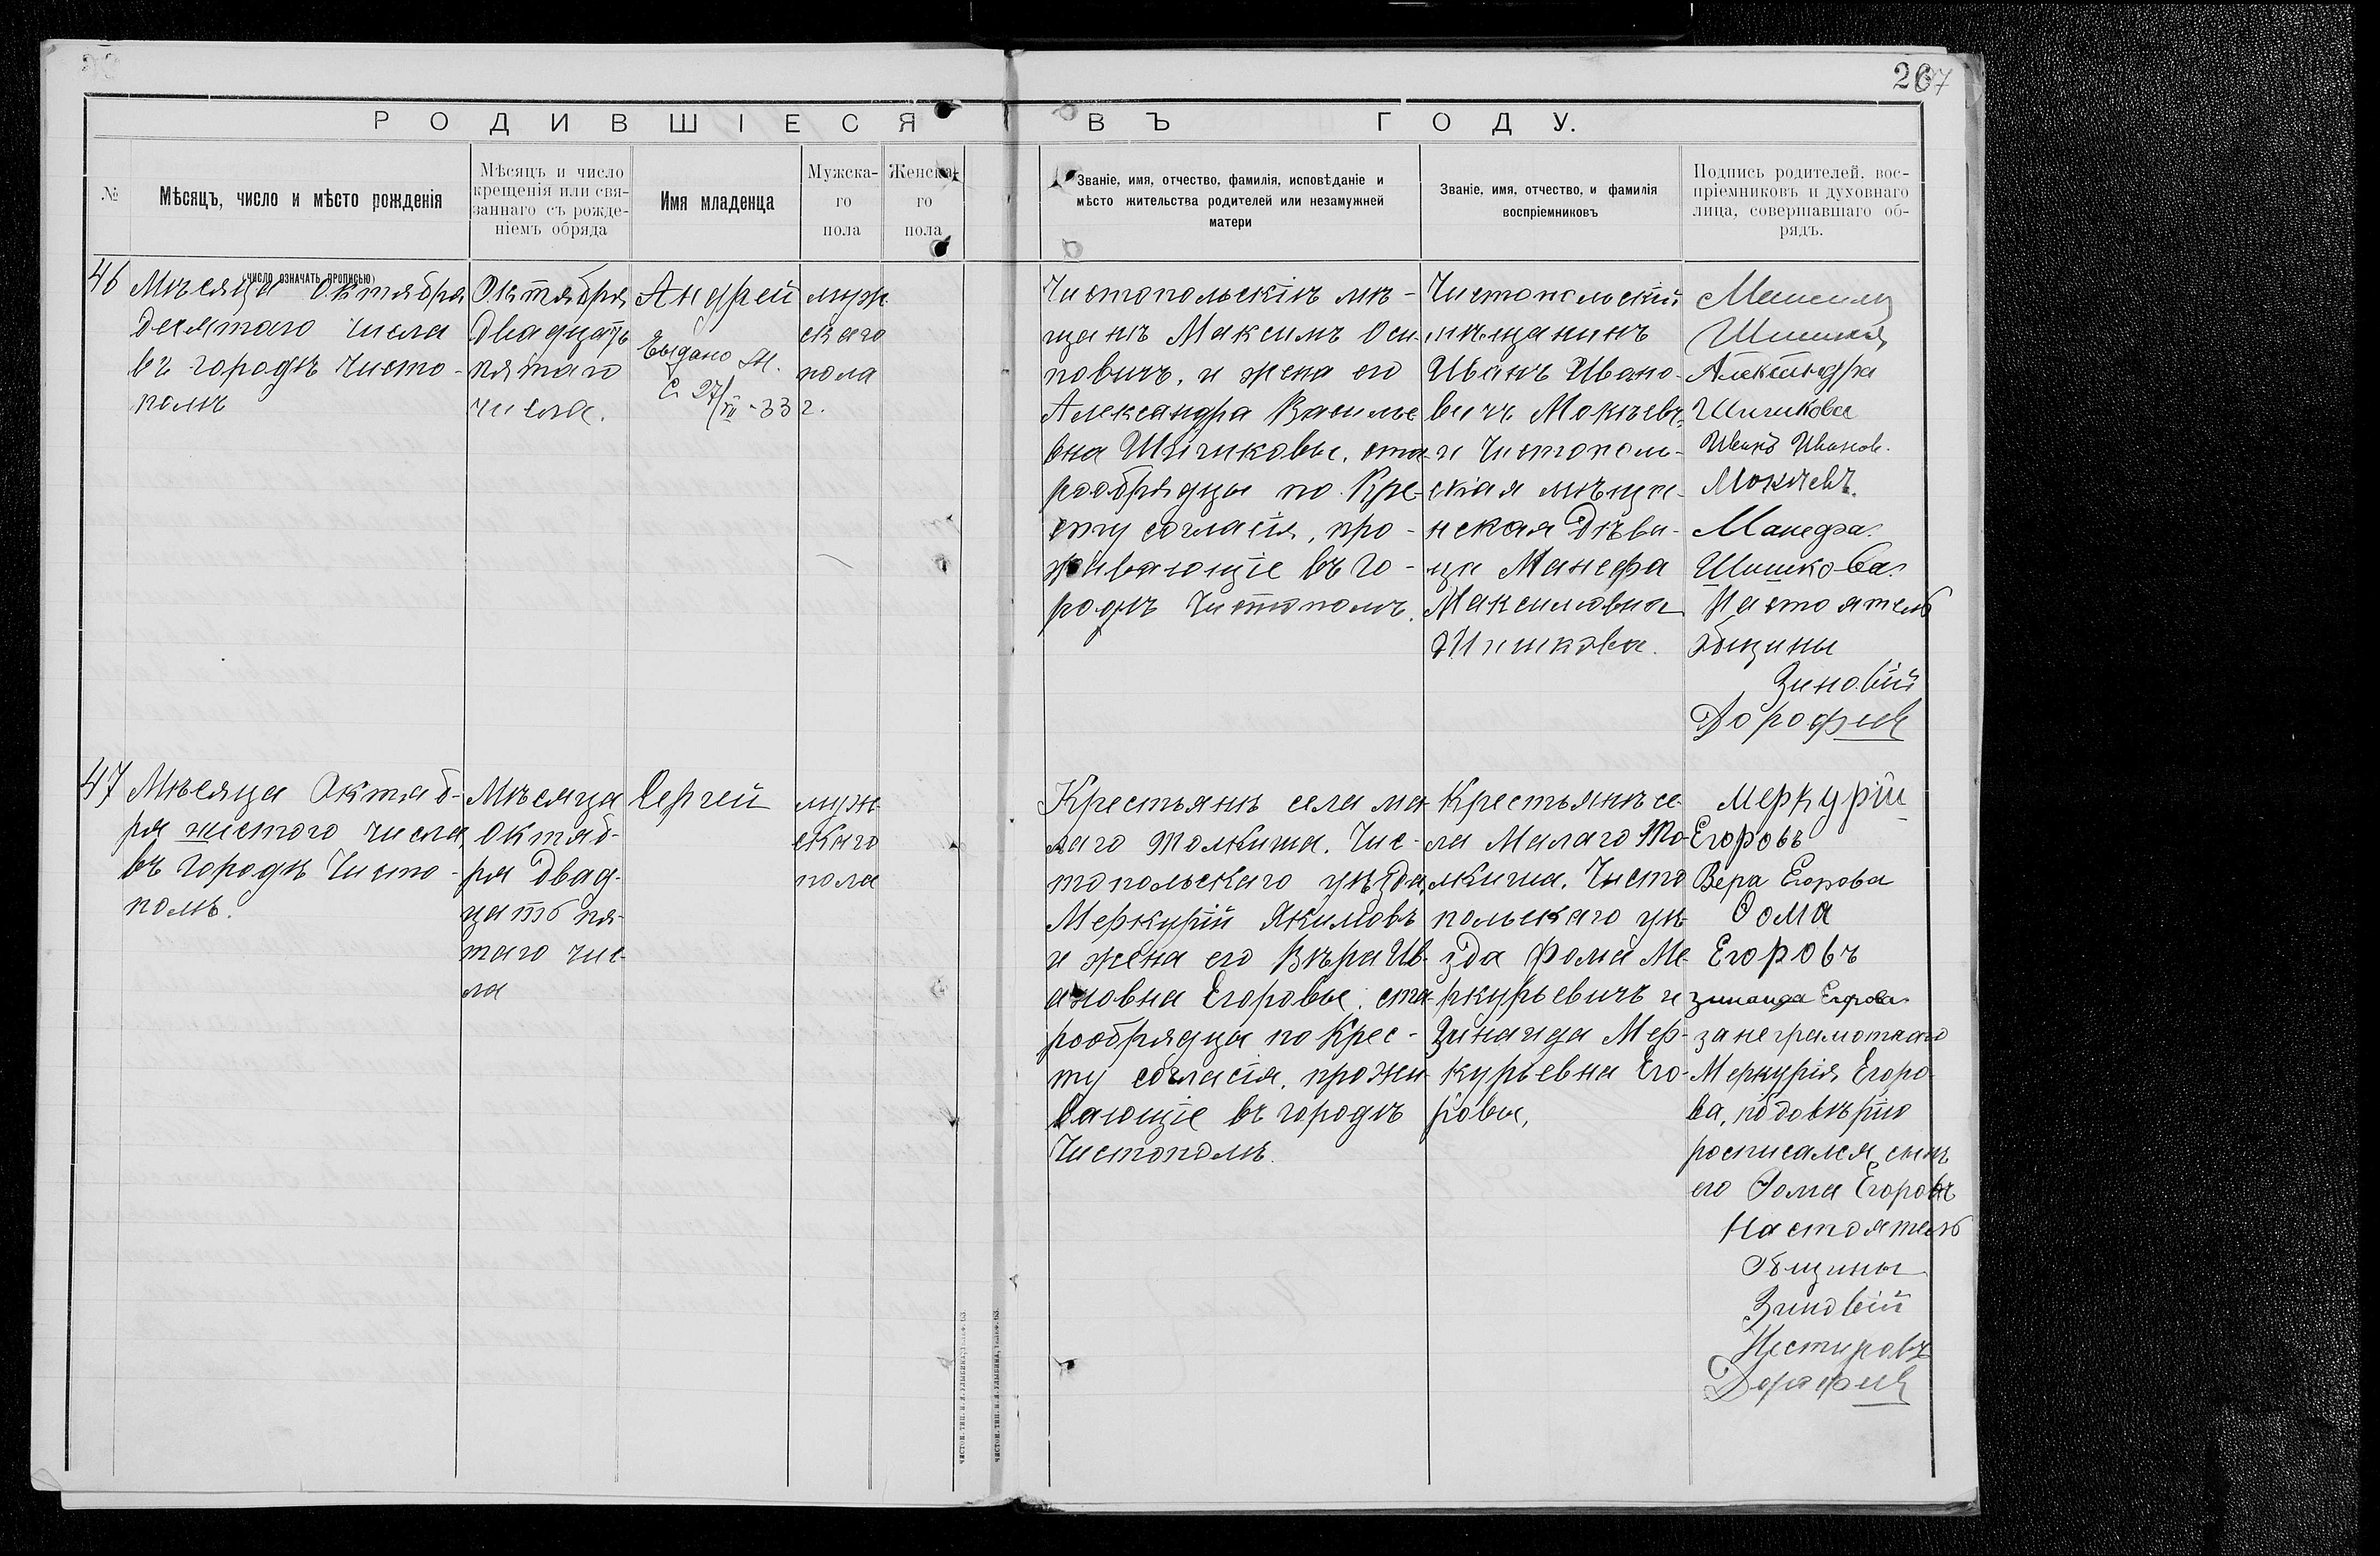 267
РОДИВШІЕСЯ ВЪ ГОДУ.
№
Мѣсяцъ, число и мѣсто рожденія
(число означать прописью)
Мѣсяцъ и число
крещенія или свя-
заннаго съ рожде-
ніемъ обряда
Имя младенца
Мужска-
го
пола
Женска-
го
пола
Званіе, имя, отчество, фамилія, исповѣданіе и
мѣсто жительства родителей или незамужней
матери
Званіе, имя, отчество, и фамилія
воспріемниковъ
Подпись родителей, вос-
пріемниковъ и духовнаго
лица, совершавшаго об-
рядъ.
46
Мѣсяца Октября
десятаго числа
въ городѣ Чисто-
полѣ
Октября
двадцать
пятаго
числа.
Андрей
Выдано М.
С. 27/VII-33 г.
муж
скаго
пола
Чистопольскій мѣ-
щанъ Максимъ Оси-
повичъ, и жена его
Александра Василье
вна Шишковы, ста-
рообрядцы по Кре-
сту согласія, про-
живающіе въ го-
родѣ Чистополѣ.
Чистопольскій
мѣщанинъ
Иванъ Ивано-
вичъ Мокѣевъ,
и Чистополь-
ская мѣща-
нская дѣви-
ца Манефа
Максимовна
Шишкова.
Максимъ
Шишкинъ
Александра
Шишкова
Иванъ Иванов.
Мокѣевъ.
Манефа
Шишкова
Настоятель
общины
Зиновій
Дорофеев
47
Мѣсяца Октяб-
ря шестого числа,
въ городѣ Чисто-
полѣ.
Мѣсяца
Октяб-
ря двад-
цать пя-
таго чис-
ла
Сергей
муж
скаго
пола
Крестьянъ села ма-
лаго Толкиша, Чис-
топольскаго уѣзда,
Меркурій Якимовъ
и жена его Вѣра Ив-
ановна Егоровы, ста-
рообрядцы по Крес-
ту согласія, прожи-
вающіе въ городѣ
Чистополѣ.
Крестьянъ се-
ла Малаго То-
лкиша, Чисто
польскаго уѣ-
зда Фома Ме-
ркурьевичъ и
Зинаида Мер-
курьевна Его-
ровы,
Меркурій
Егоровъ
Вера Егорова
Ѳома
Егоровъ
зинаида Егорова
за неграмотнаго
Меркурія Егоро-
ва, по довѣрію
росписался сынъ
его Ѳома Егоровъ
Настоятель
Общины
Зиновій
Нестировъ
Дорофеев
ЧИСТОП. ТИП. И. Я. УЛЬЯНИНА, ТЕЛЕФ. 63.
ЧИСТОП. ТИП. И. Я. УЛЬЯНИНА, ТЕЛЕФ. 63.